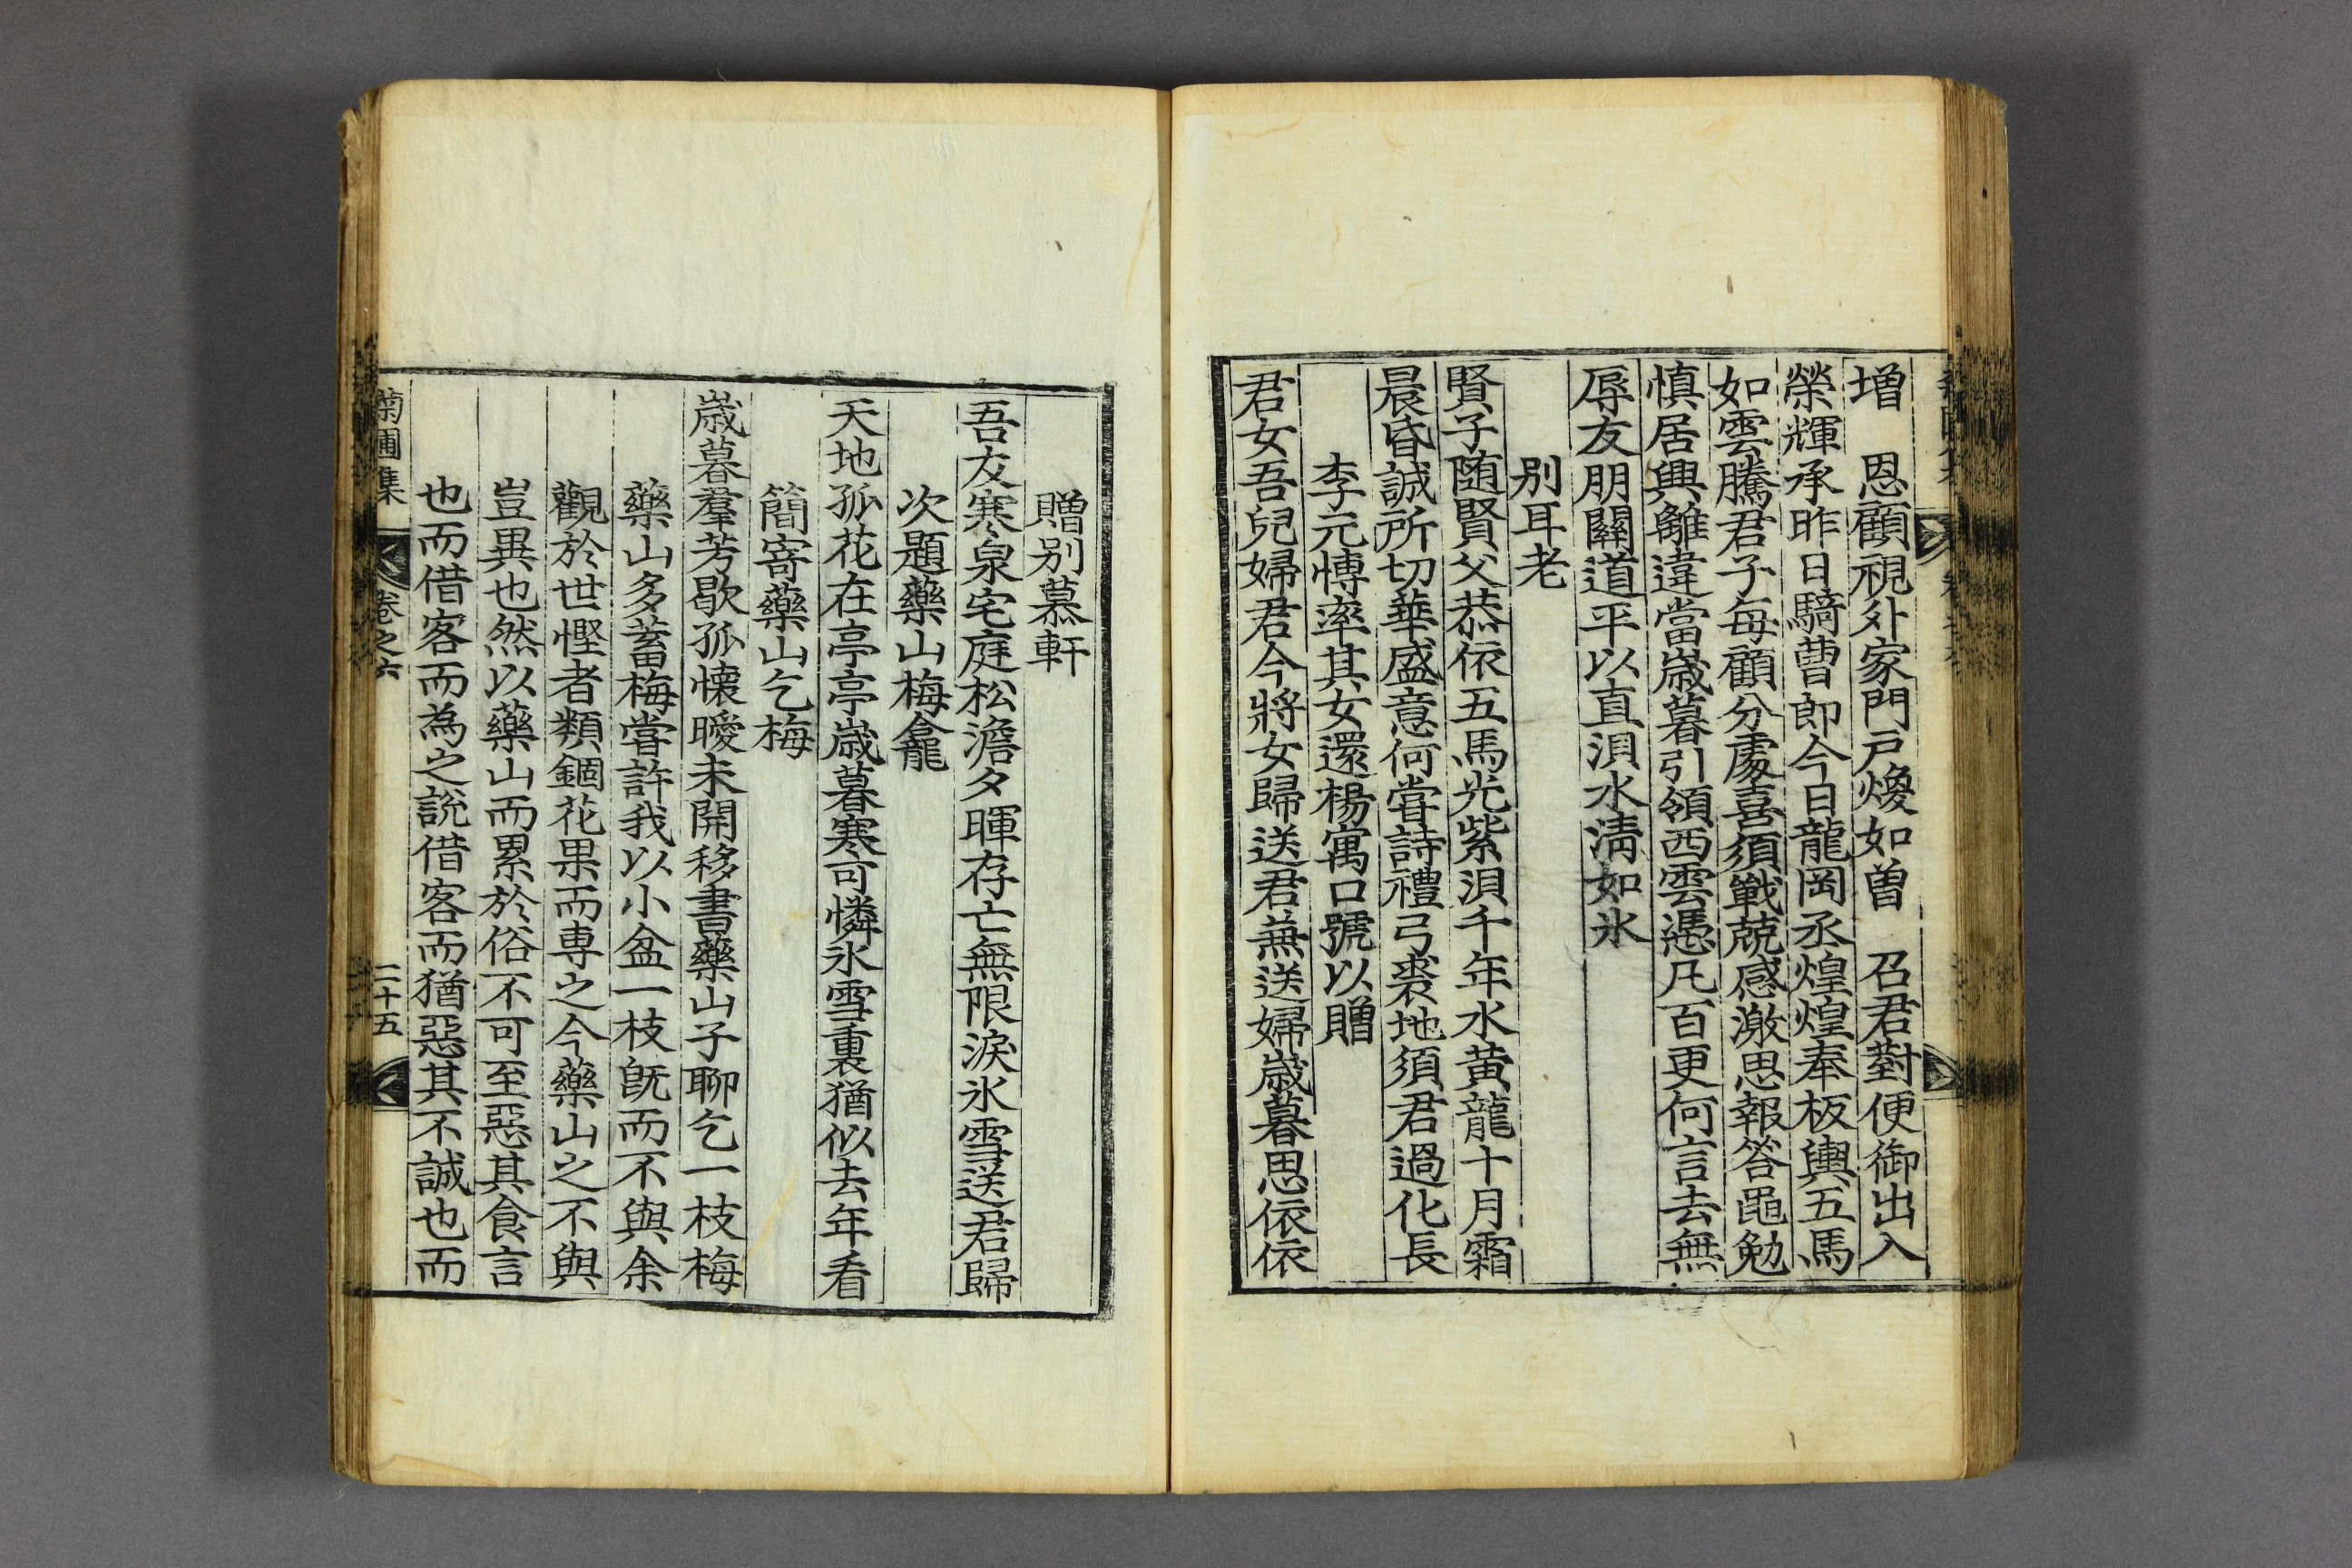 增　恩顧視外家門戶煥如曽　召君對便御出入
榮輝承昨日騎曹郎今日龍岡丞煌煌奉板輿五馬
如雲騰君子每顧分處喜須戰兢感激思報答黽勉
愼居興雖違當歲暮引領西雲憑凡百更何言去無
辱友朋關道平以直浿水淸如氷
別耳老
賢子随賢父恭依五馬光紫浿千年水黃龍十月霜
晨昏誠所切華盛意何嘗詩禮弓裘地須君過化長
李元愽率其女還楊寓口號以贈
君女吾兒婦君今將女歸送君蕪送婦歲暮思依依
贈別慕軒
吾友寒泉宅庭松澹夕暉存亡無限淚氷雪送君歸
次題藥山梅龕
天地孤花在亭亭歲暮寒可憐氷雪裏猶似去年看
簡寄藥山乞梅
歲暮羣芳歇孤懷曖未開移書藥山子聊乞一枝梅
藥山多蓄梅嘗許我以小盆一枝旣而不與余
觀於世慳者類錮花果而專之今藥山之不與
豈異也然以藥山而累於俗不可至惡其食言
也而借客而為之說借客而猶惡其不誠也而
菊圃集　卷之六　二十五